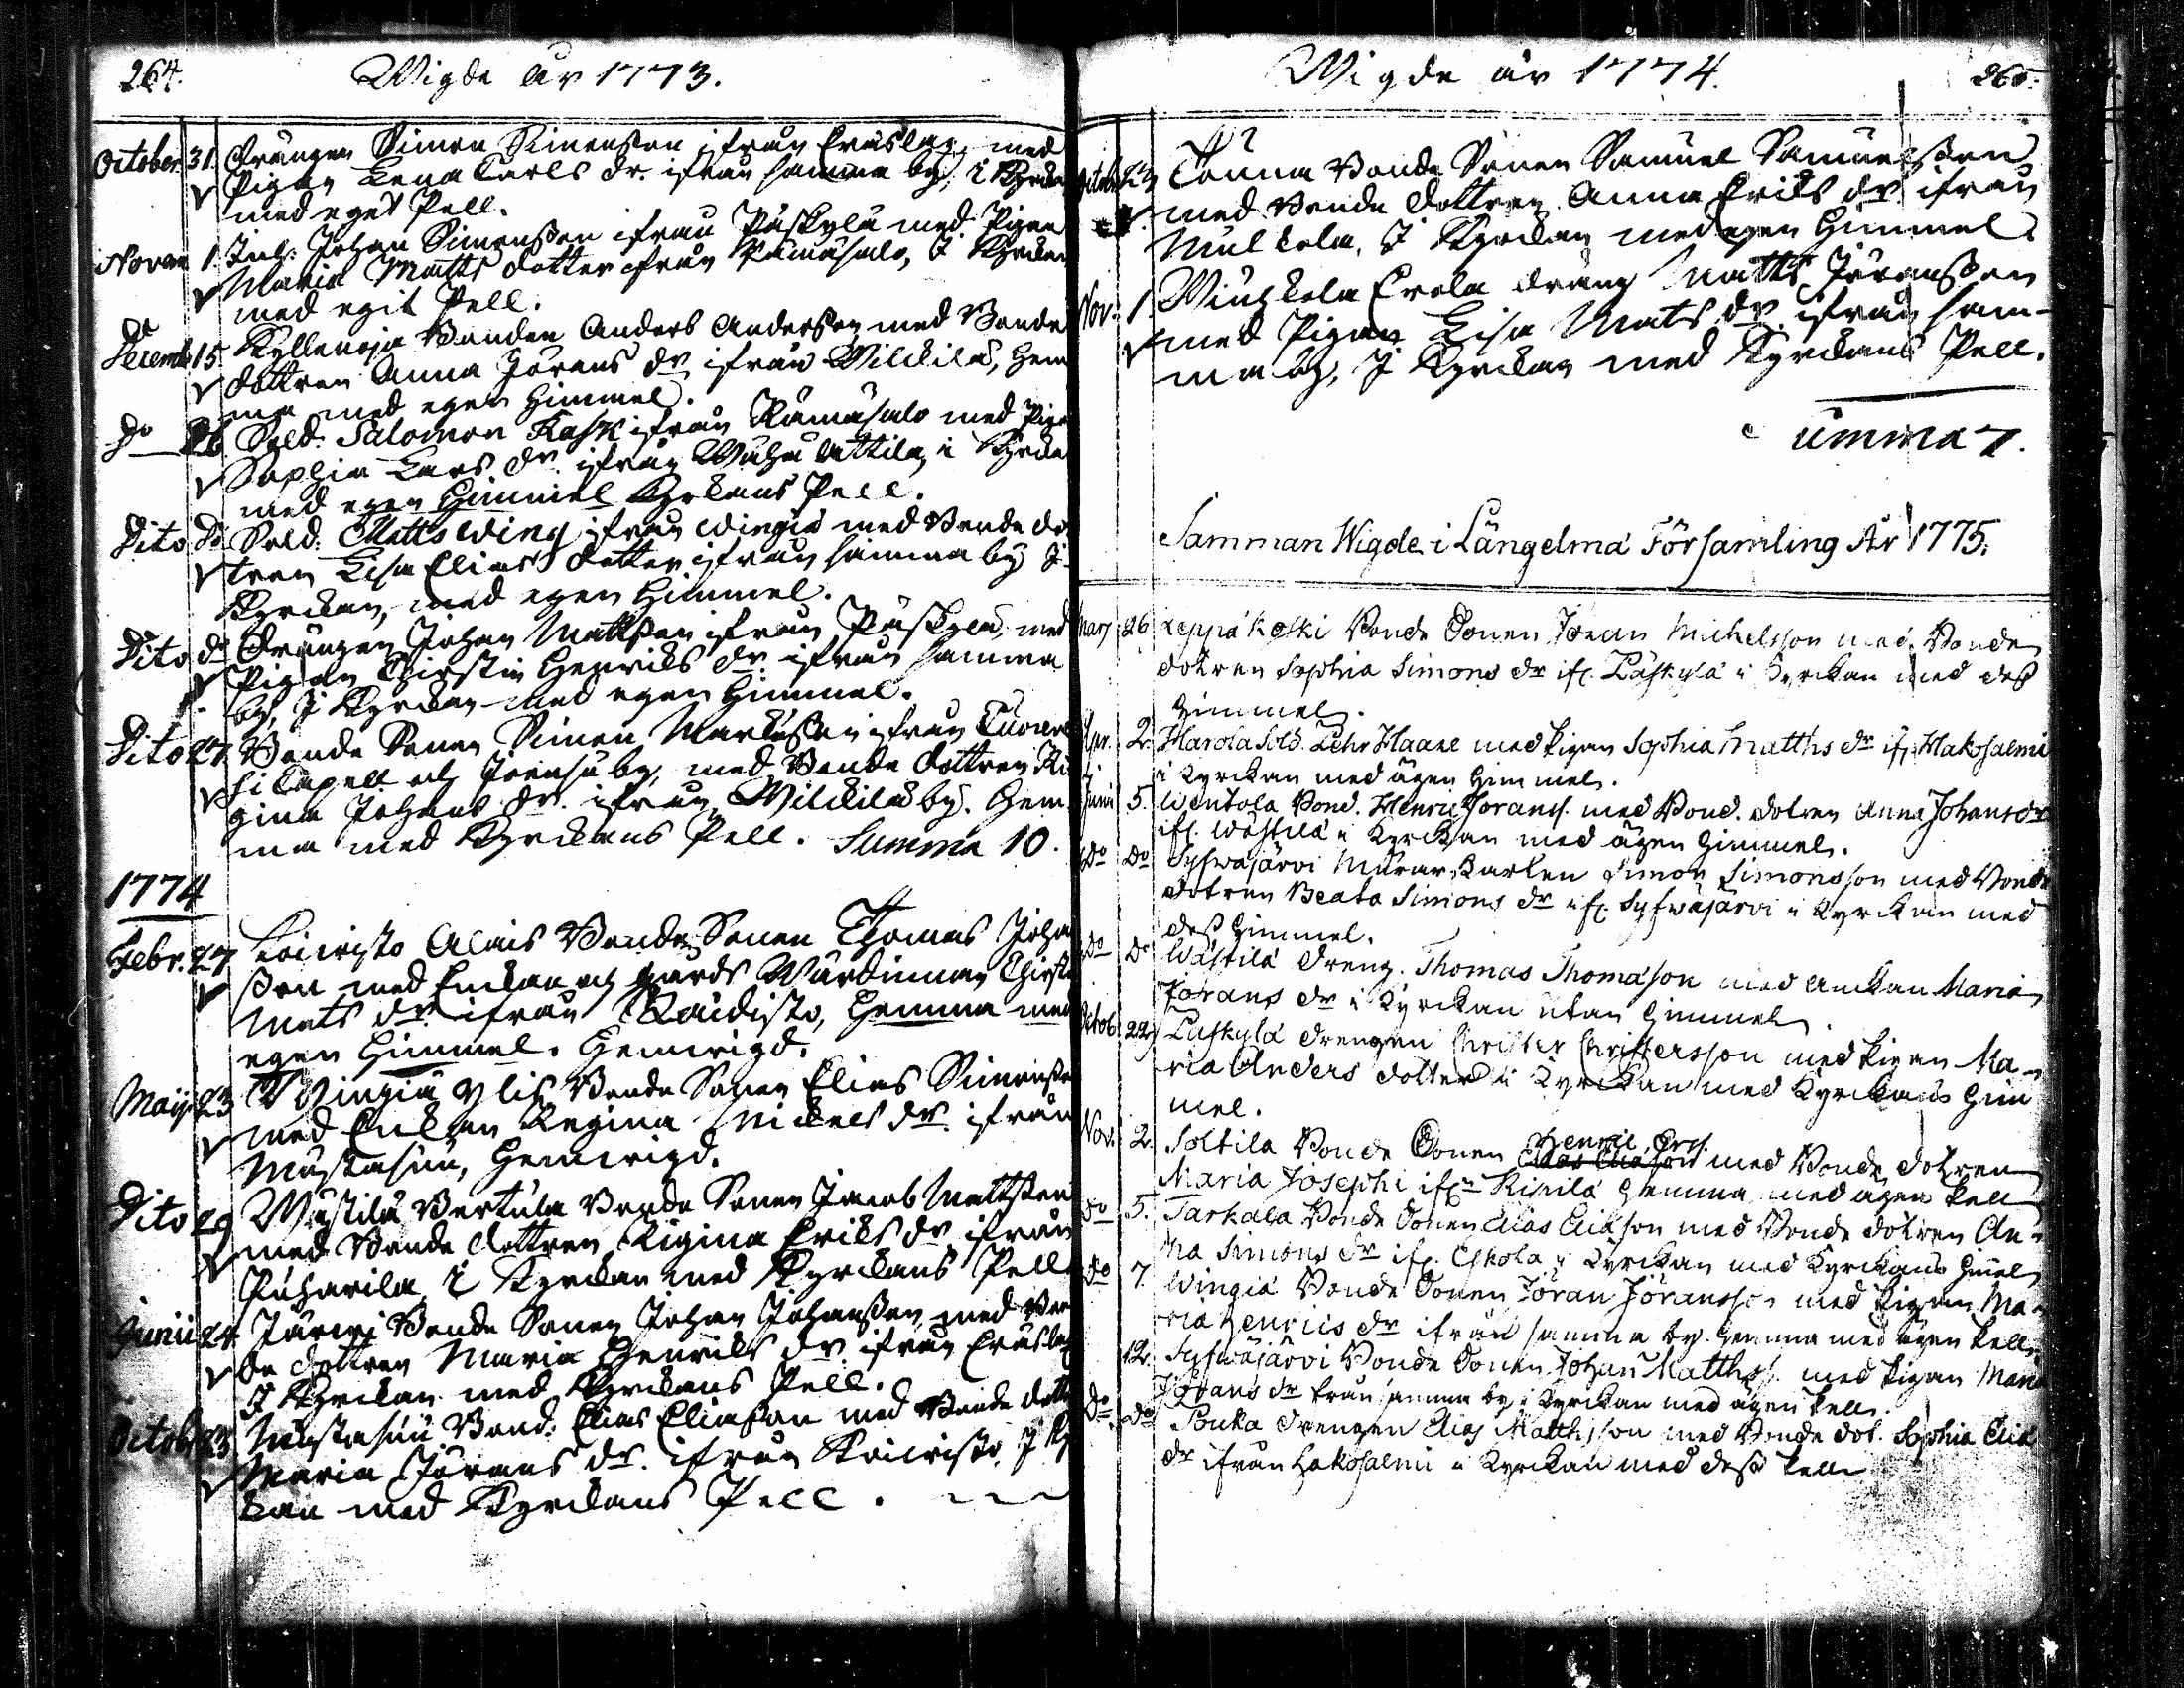 264.
Wigde år 1773.
October 31. Drängen Simon Simonsson ifrån Eräslax, med
Pigan Lena Carls dr. ifrån samma by, i Kyrkan
med eget Pell.
Novem 1. Inh: Johan Simonsson ifrån Puskylä med Pigan
Maria Matts dotter ifrån Rämäsalo, I Kyrkan
med egit Pell.
Decemb 15. Bonden Anders Andersson med Bonde
dottren Anna Jörans dr ifrån Wilckilä, hem
ma med egen Himmel.
Do 26 Sold. Salomon Rask ifrån Rämäsalo med Piga
Sophia Lars dr. ifrån i Kyrkan
med egen Himmel Kyrkans Pell.
Dito Do Sold. Matts Wing ifrån Wingiä med Bonde do
tren Lisa Elias dotter ifrån samma by I
Kyrckan, med egen Himmel.
Dito do Drängen Johan Mattsson ifrån Päskylä, med
Pigan Christin Henriks dr ifrån samma
by, I Kyrckan med egen Himmel.
Dito 27. Bonde Sonen Simon Markusson ifrån
Capell och by, med Bonde dottren Re
gina Johans dr. ifrån Wilckilä by. Hem
ma med Kyrckans Pell. Summa 10.
1774
Febr. 27 Koiwisto Alais Bonde Sonen Thomas Joha
sson med Enckan och gårds Wärdinnan Christi
Mats dr ifrån Raidisto, Hemma med
egen Himmel. Hemwigd.
Maij 23 Wingiä Ylis Bonde Sonen Elias Simonsson
med Enckan Regina Mickels dr. ifrån
Mustasuu, Hemwigd.
Dito 29 Wästilä Bertula Bonde Sonen Jacob Mattsson
med Bonde dottren Rigina Eriks dr ifrån
Puharila I Kyrckan med Kyrckans Pell
Junii 24 Järwi Bonde Sonen Johan Johansson med Bon
de dottren Maria Henriks dr ifrån Eräslax
I Kyrckan med Kyrckans Pell.
Octob 23 Mustasuu Bond: Elias Eliasson med Bonde dott
Maria Jörans dr. ifrån Koiwisto, I Kyr
kan med Kyrckans Pell.
Wigde år 1774.
265.
Octob 23 Bonde Sonen Samuel Samuelsson
med Bonde dottren Anna Eriks dr ifrån
Mulkola, I Kyrckan med egen Himmel
Nov. 1 Erola dräng Matts Jöransson
med Pigan Lisa Mats dr ifrån sam-
ma by, I Kyrckan med Kyrckans Pell.
umma 7.
Samman Wigde i Längelmä Församling År 1775.
Marj 26 Leppäkoski Bonde Sonen Jöran Michelsson med Bonde
dotren Sophia Simons dr ifr. Päskylä i Kyrckan med dess
Himmel.
Apr. 2. Harola Sold. Pehr Haane med Pigan Sophia Matths dr ifr. Hakosalmi
i Kyrckan med ägen Himmel.
Junii 5. Wentola Bond. Henric Jöranss. med Bond. dotren Anna Johans dr
ifr. Wästilä i Kyrckan med ägen Himmel.
Do Do Syfwäjärvi Murar Karlen Simon Simonsson med Bonde
dotren Beata Simons dr ifr. Syfwäjärvi i Kyrckan med
dess Himmel.
Do Do Wästilä Dreng. Thomas Thomasson med Enckan Maria
Jörans dr i Kyrckan utan Himmel.
Octob. 22 Päskylä drengen Christer Christersson med Pigan Ma-
ria Anders dotter i Kyrckan med Kyrckans Him
mel.
Nov. 2. Soltila Bonde Sonen Henric Ers. med Bonde dotren
Maria Josephi ifrn Hemma med ägen Pell
Do 5. Tarkala Bonde Sonen Elias Eliasson med Bonde dotren An-
na Simons dr ifr. Eskola i Kyrckan med Kyrckans Himel
Do 7. Wingiä Bonde Sonen Jöran Jöransson med Pigan Ma-
ria Henrics dr ifrån samma by. Hemma med ägen Pell.
12. Syfwäjärvi Bonde Sonen Johan Matths. med Pigan Maria
Jörans dr från samma by i Kyrckan med ägen Pell.
Do Do Pouka Drengen Elias Matthsson med Bonde dot. Sophia Elia
dr ifrån Hakosalmi i Kyrckan med dess Pell